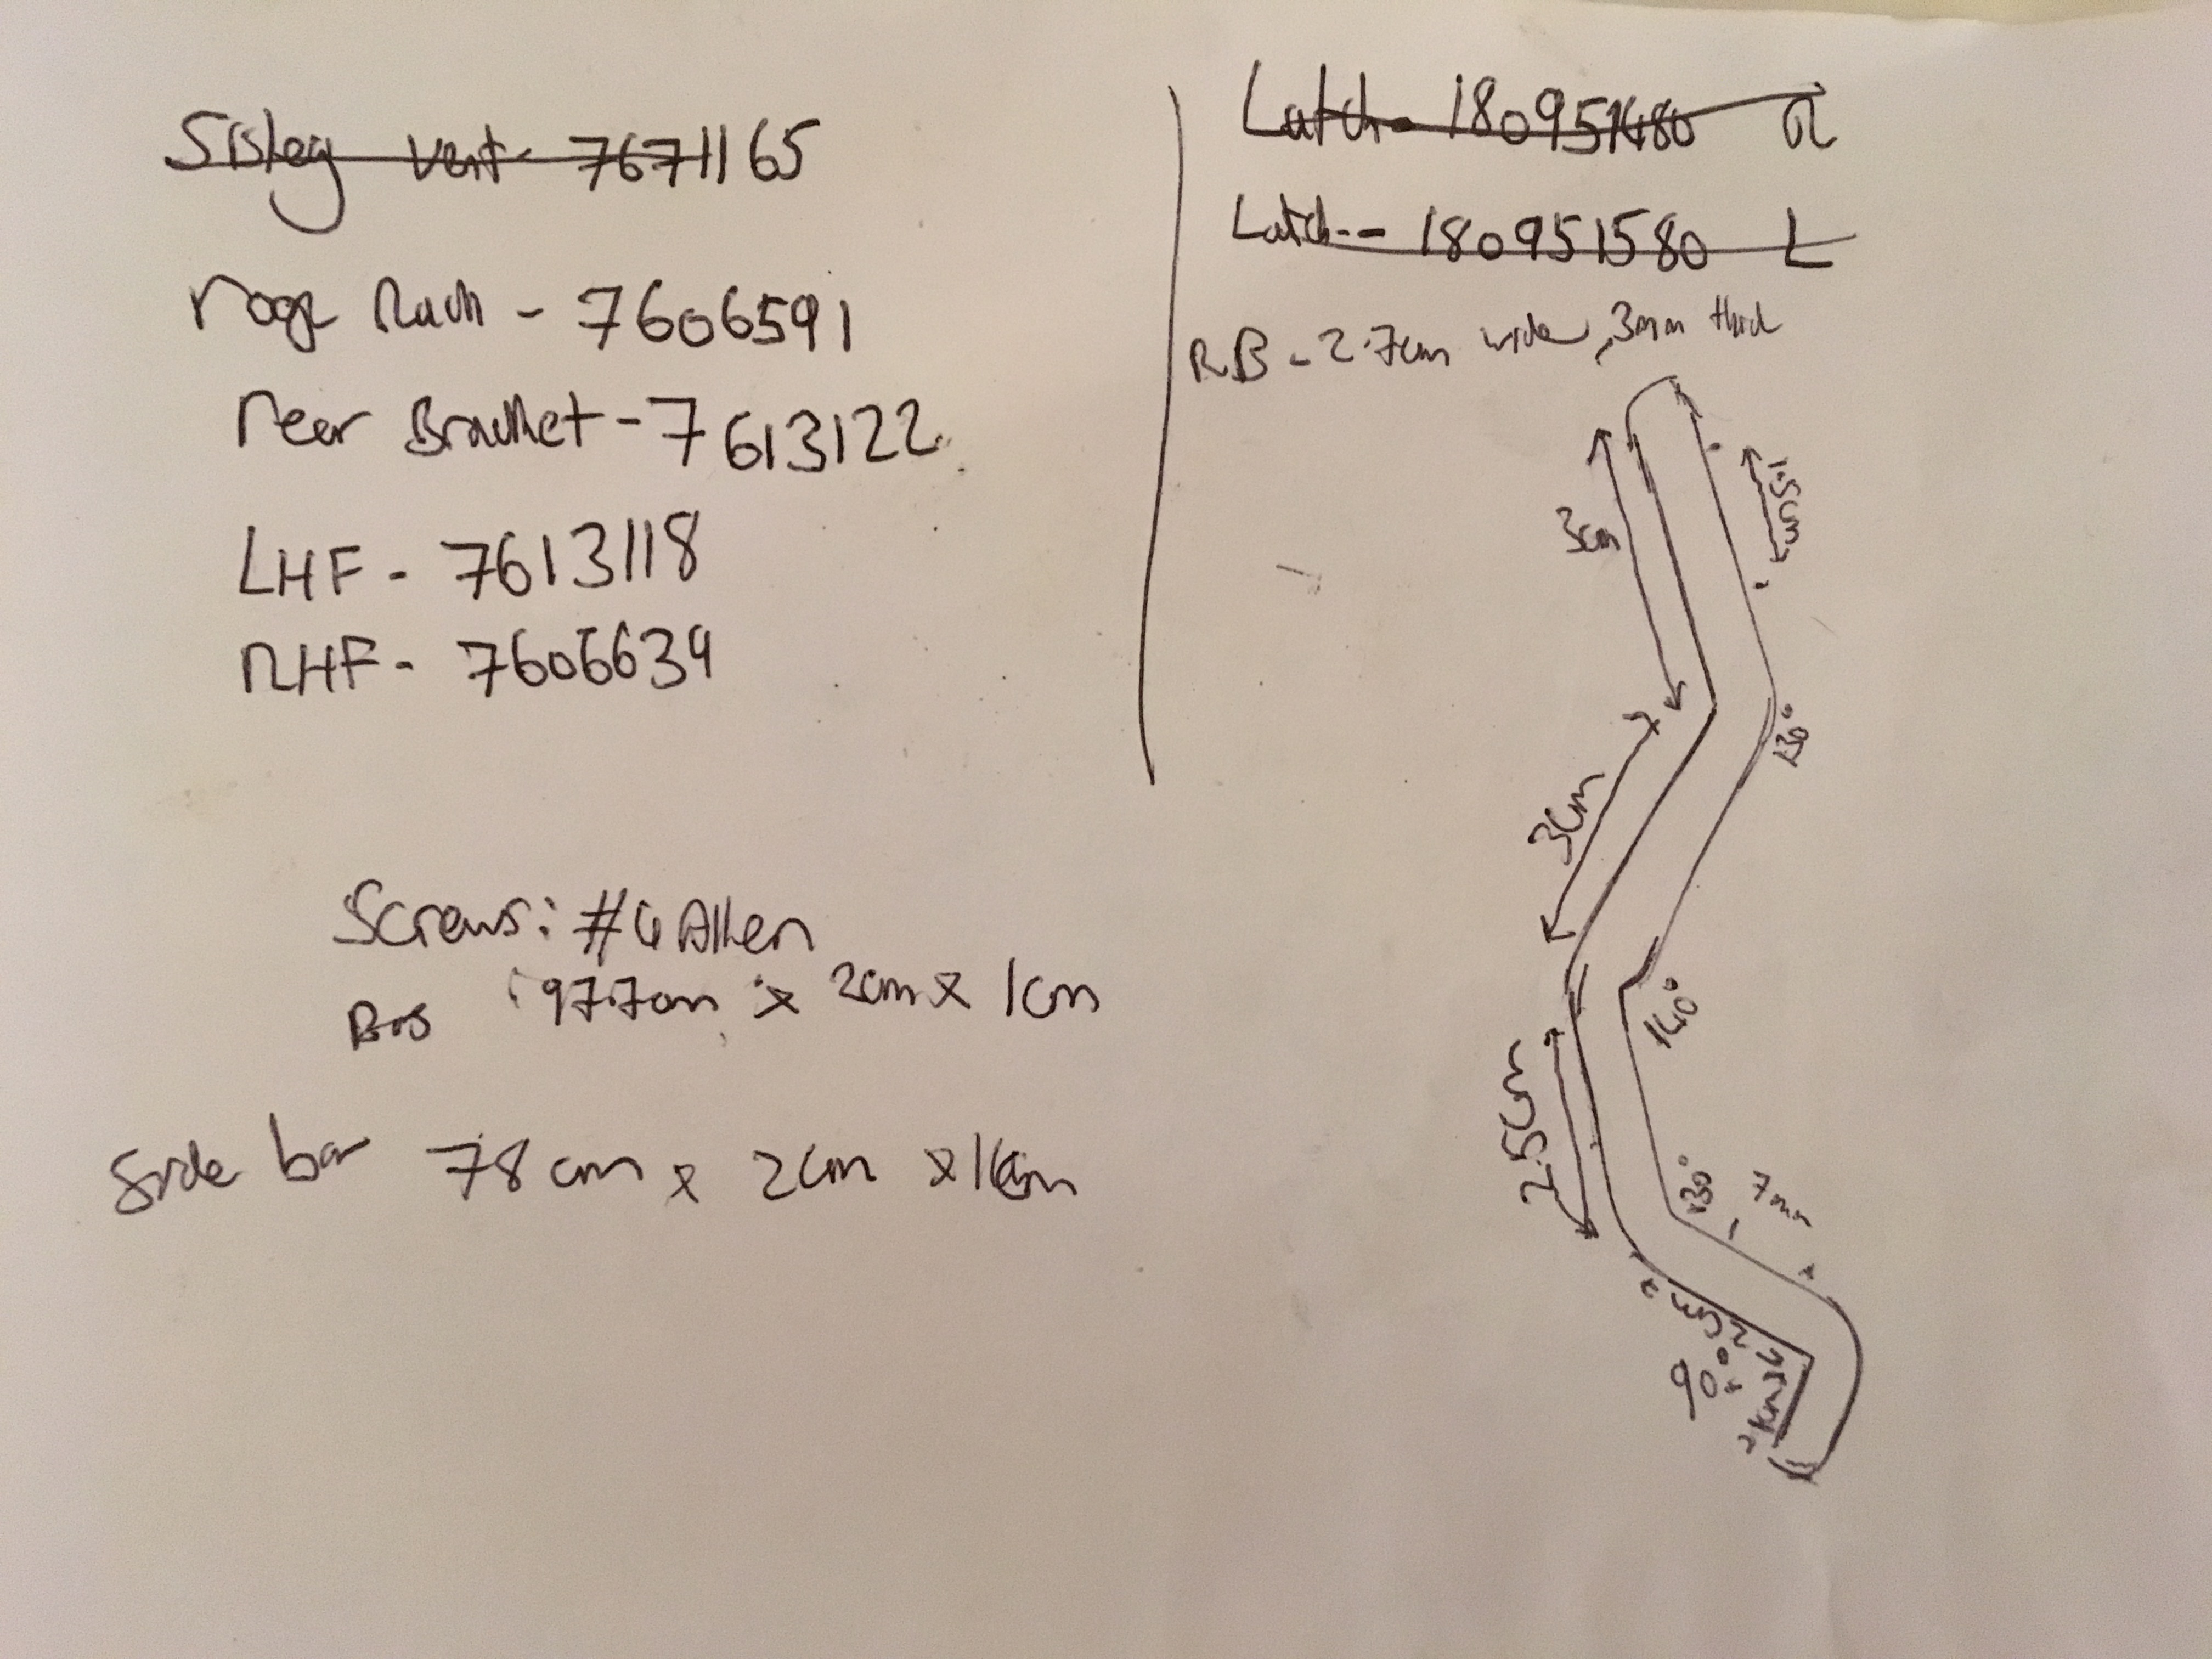 vent - 7671165
roof Rack - 7606591
rear Bracket - 7613122
LHF - 7613118
RHF - 7606634
Screws: #4 Allen
97.7cm x 2cm x 1cm
Side bar 78cm x 2cm x 1cm
Latch - 180951480 R
Latch -- 180951580 L
RB - 2.7cm wide, 3mm thick
1.5cm
3cm
130°
3cm
140°
2.5cm
130° 7mm
90°
1cm